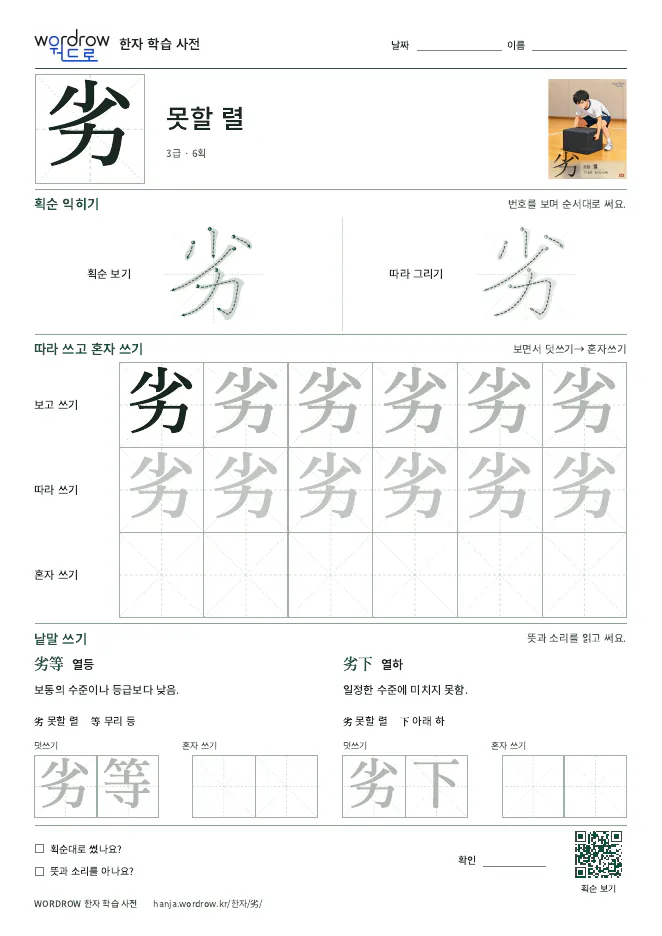 wordrow
워드로
한자 학습 사전
날짜
이름
劣
못할 렬
3급 · 6획
劣
획순 익히기
번호를 보며 순서대로 써요.
획순 보기
劣
따라 그리기
劣
따라 쓰고 혼자 쓰기
보면서 덧쓰기→ 혼자쓰기
보고 쓰기
劣 劣 劣 劣 劣 劣
따라 쓰기
劣 劣 劣 劣 劣 劣
혼자 쓰기
낱말 쓰기
뜻과 소리를 읽고 써요.
劣等 열등
보통의 수준이나 등급보다 낮음.
劣 못할 렬 等 무리 등
덧쓰기
혼자 쓰기
劣等
劣下 열하
일정한 수준에 미치지 못함.
劣 못할 렬 下 아래 하
덧쓰기
혼자 쓰기
劣下
획순대로 썼나요?
뜻과 소리를 아나요?
확인
획순 보기
WORDROW 한자 학습 사전 hanja.wordrow.kr/한자/劣/